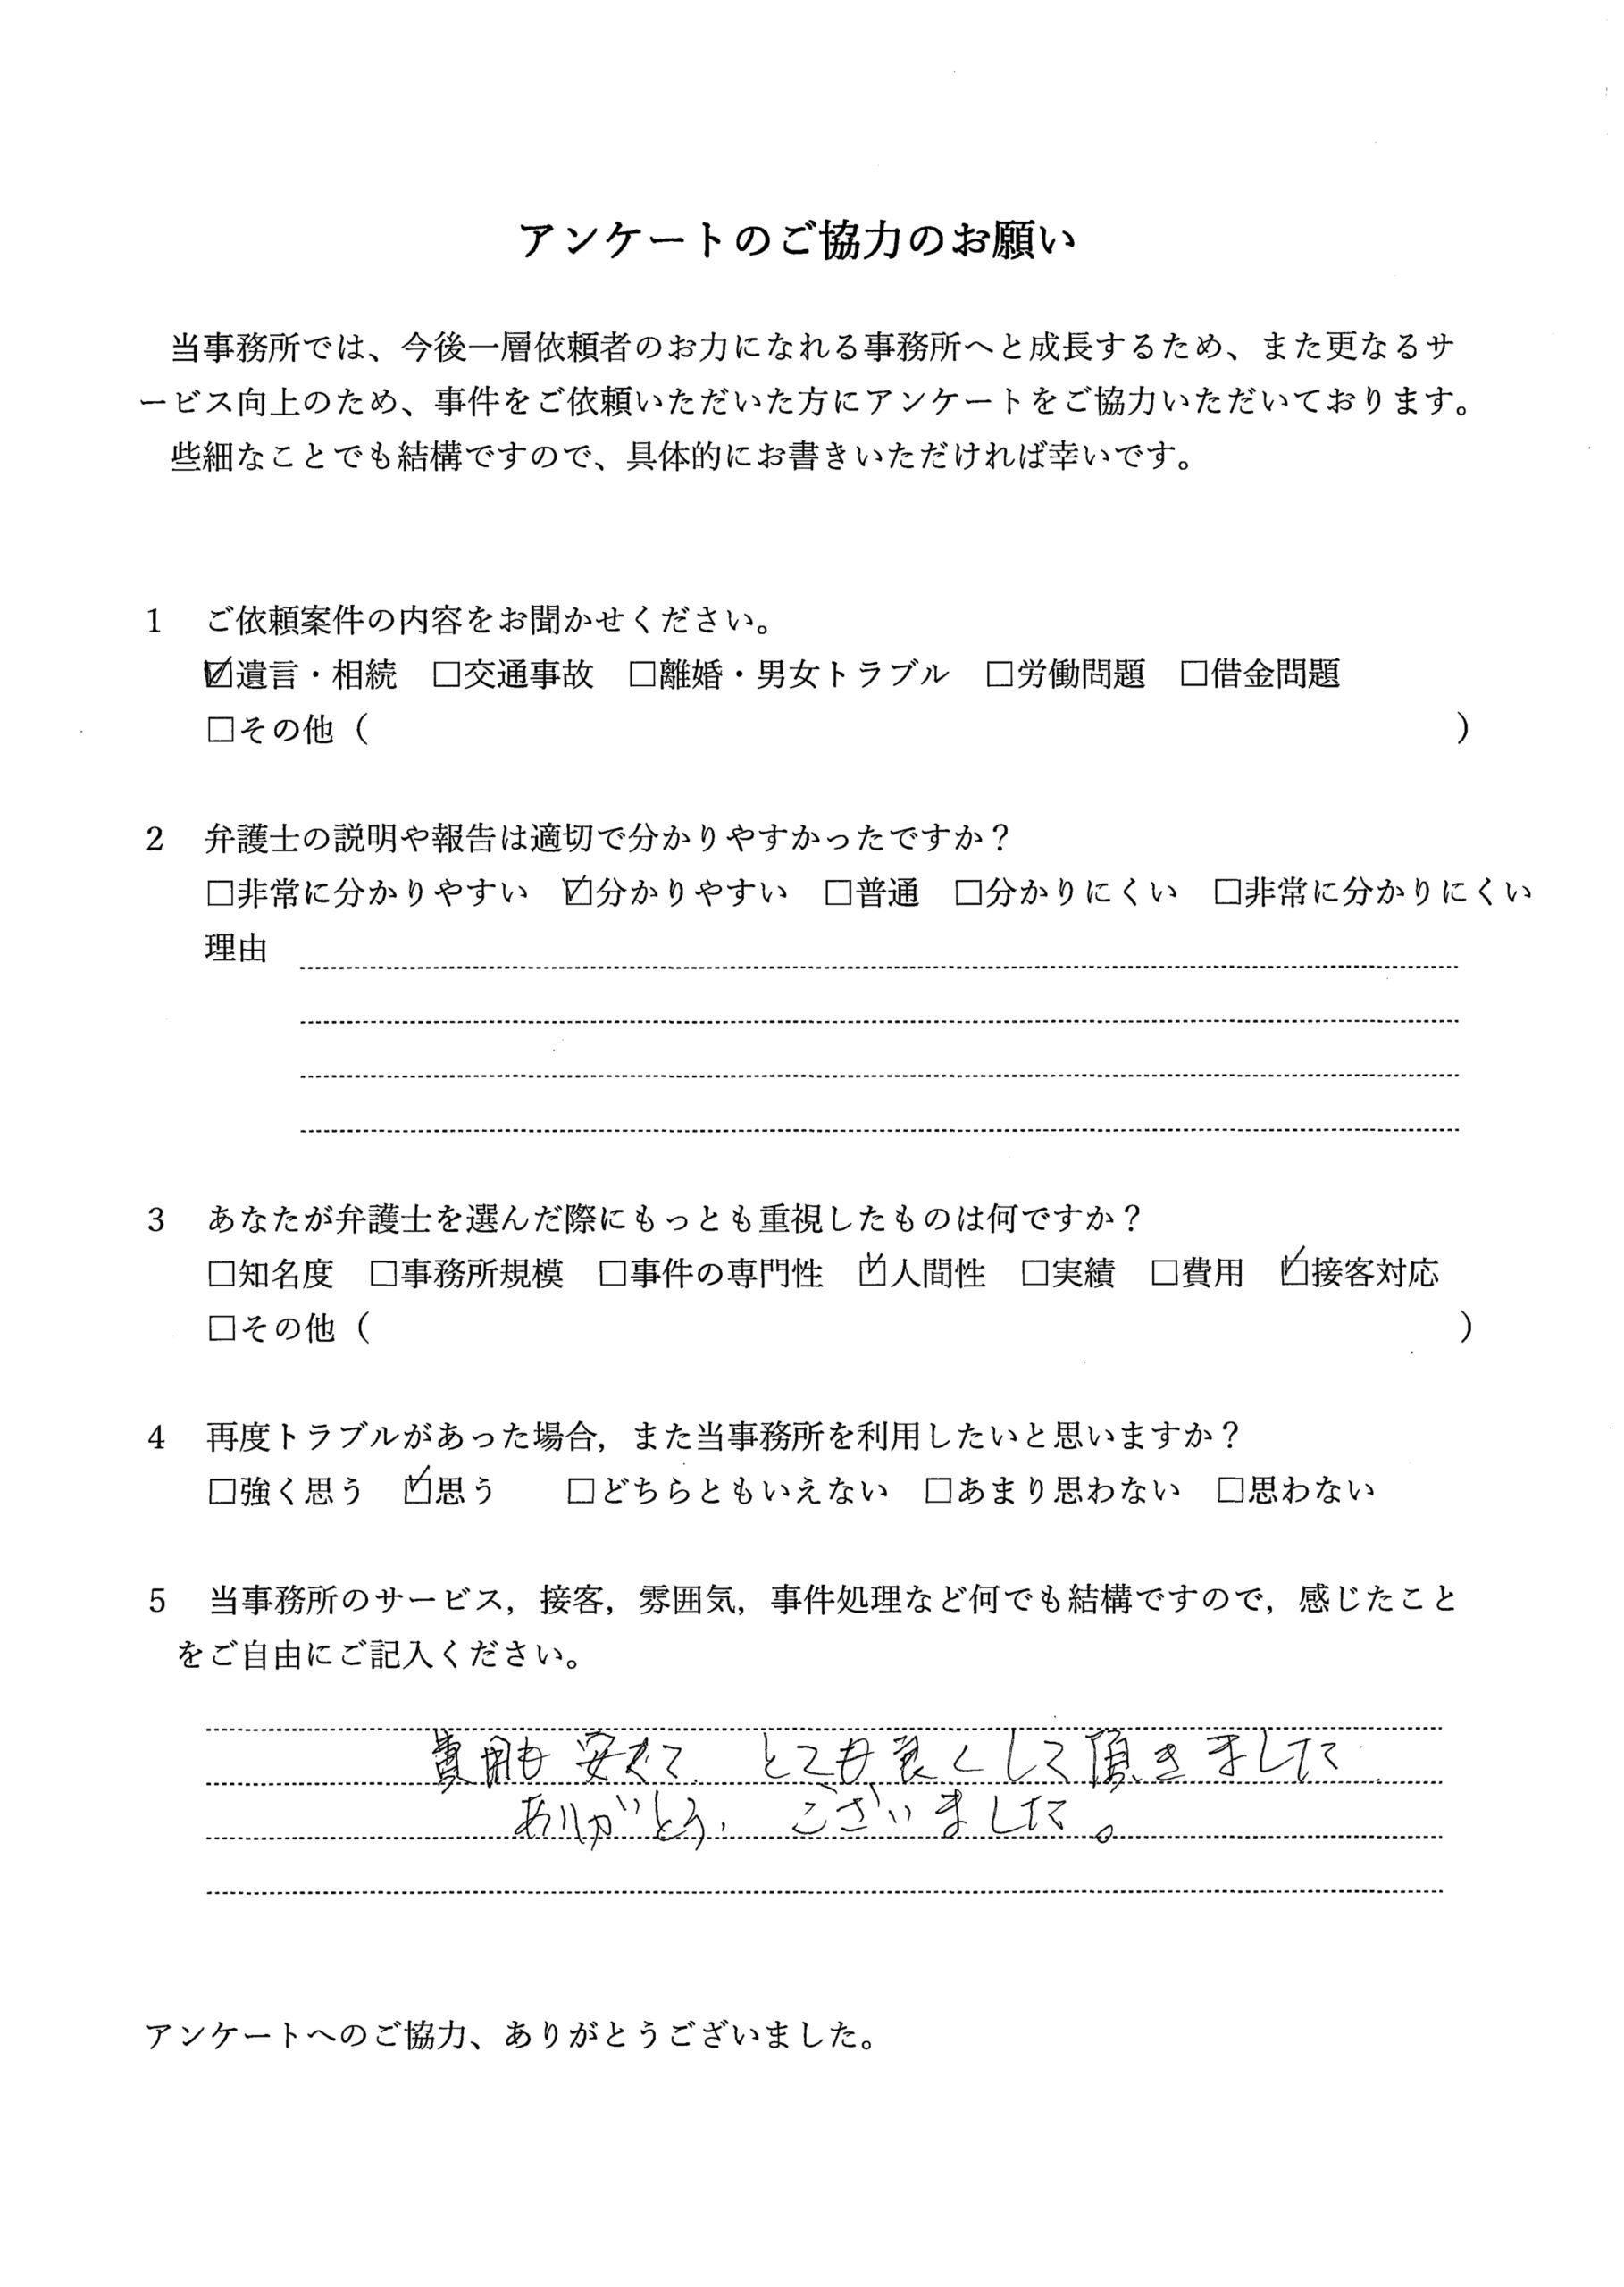 アンケートのご協力のお願い
当事務所では、今後一層依頼者のお力になれる事務所へと成長するため、また更なるサ
ービス向上のため、事件をご依頼いただいた方にアンケートをご協力いただいております。
些細なことでも結構ですので、具体的にお書きいただければ幸いです。
1 ご依頼案件の内容をお聞かせください。
☑遺言・相続 □交通事故 □離婚・男女トラブル □労働問題 □借金問題
□その他（ ）
2 弁護士の説明や報告は適切で分かりやすかったですか？
□非常に分かりやすい ☑分かりやすい □普通 □分かりにくい □非常に分かりにくい
理由
3 あなたが弁護士を選んだ際にもっとも重視したものは何ですか？
□知名度 □事務所規模 □事件の専門性 ☑人間性 □実績 □費用 ☑接客対応
□その他（ ）
4 再度トラブルがあった場合，また当事務所を利用したいと思いますか？
□強く思う ☑思う □どちらともいえない □あまり思わない □思わない
5 当事務所のサービス，接客，雰囲気，事件処理など何でも結構ですので，感じたこと
をご自由にご記入ください。
費用も安くて とても良くして頂きました
ありがとう、ございました。
アンケートへのご協力、ありがとうございました。